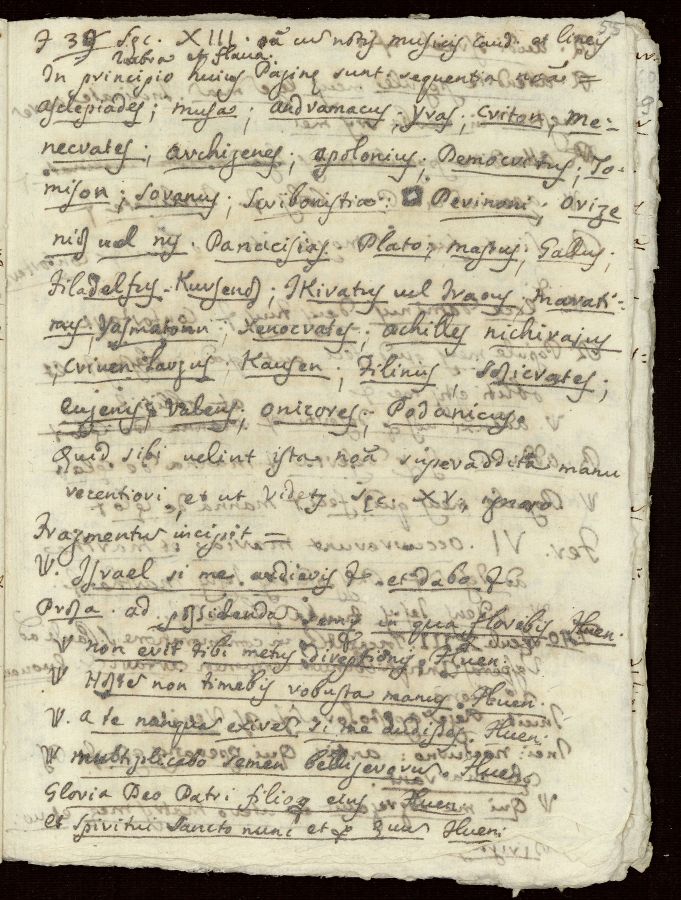 55
Sęc. XIII. cū notis musicis caud. et lineis
rubra et flava.
In principio huius Paginę sunt sequentia noāa =
asclepiades; musa; andramacus, yvas, Criton, me-
necrates; archigenes; apolonius; Democritus; To-
mison; soranus; Scribonistia: Perinoni, Orize
nis uel nis. Pancisias. Plato; mastus; Gallus;
filadelfus. Kursens; Ikiratus uel Iraous marati-
mus yasmatonn; Xenocrates; achilles nichirajus
, criuen largus Kausen; filinus sosicrates;
eugenius; Valeus; onizores; Podanicus.
Quid sibi uelint ista noāa superaddita manu
recentiori, et ut videtʒ sęc. XV, ignoro
Fragmentus incipit =
V. Israel si me audieris &c. et dabo &c
Prosa. ad possidenda in qua florebis Huen.
V non erit tibi metus direptionis Huen.
V Hostes non timebis robusta manus Huen.
V. a te nanquā exiret si me audisses. Huen.
V multiplicabo semen Huen
Gloria Deo Patri filioq eius Huen
et spiritui sancto nunc et p Huen.